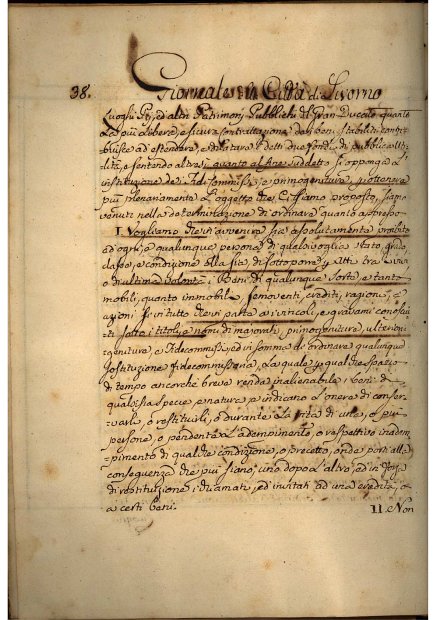 38. Giornale della Città di Livorno
Luoghi Pij, ed altri Patrimonj Pubblici del Gran Ducato quanto
la più libera, e sicura contrattazione dei beni stabili contri-
buisce ad estendere, e facilitare i detti due fonti di pubblica utili-
lità, e sentendo altresì quanto al fine suddetto si opponga l'
instituzione dei Fidecommissi, e primogeniture, e ottenere
più pienamente l'oggetto che Ci siamo proposto, siamo
venuti nella determinazione di ordinare quanto appresso
I. Vogliamo che in avvenire sia assolutamente proibito
ad ogni, e qualunque persona di qualsivoglia stato, grado
classe, e condizione alla sia, di sottoporre per atti tra vivi
o d'ultima volontà i Beni di qualunque sorte, e tanto
mobili, quanto immobili, semoventi, crediti, ragioni, ed
azioni in tutto che in parte a vincoli, e gravami conosciu-
ti sotto i titoli, e nomi di majorati, primogeniture, ulterioni-
genitura, e Fidecommissi, ed in somma di ordinare qualunque
sostituzione fidecommissaria, la quale per qualche spazio
di tempo ancorchè breve renda inalienabile i beni di
qualsisia specie, e natura e inducano l'onere di conser-
varli, o restituirli, o durante la vita di una, o più
persone, o pendente l'adempimento, o respettivo inadem-
pimento di qualche condizione, o precetto, onde porti alla
conseguenza che più siano, uno dopo l'altro, ed in
di restituzione chiamati, ed invitati ad una eredità, o
a certi beni. II. Non